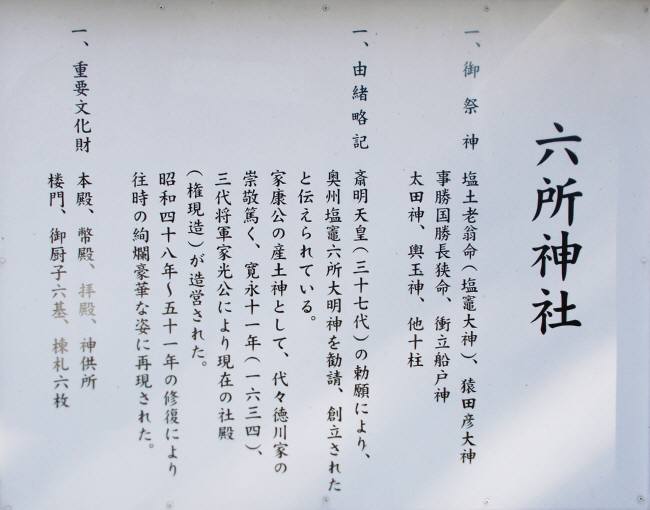 六所神社
一、御祭神
塩土老翁命(塩竈大神)、猿田彦大神
事勝国勝長狭命、衝立船戸神
太田神、興玉神、他十柱
一、由緒略記
斎明天皇(三十七代)の勅願により、
奥州塩竈六所大明神を勧請、創立された
と伝えられている。
家康公の産土神として、代々徳川家の
崇敬篤く、寛永十一年(一六三四)、
三代将軍家光公により現在の社殿
(権現造)が造営された。
昭和四十八年~五十一年の修復により
往時の絢爛豪華な姿に再現された。
一、重要文化財
本殿、幣殿、拝殿、神供所
楼門、御厨子六基、棟札六枚